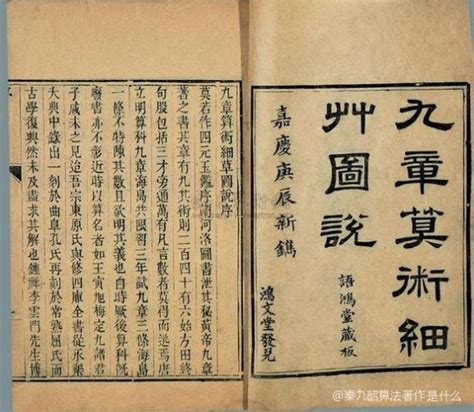 九章算術細
艸圖說
語鴻堂藏板
嘉慶庚辰新鐫
鴻文堂發兌
九章算術細草圖說序
莫若作四元玉鑑序謂河洛圖書泄其秘黃帝九章
著之書其章有九其術則二百四十有六始方田終
句股包括三才旁通萬有凡言數者莫得而逃焉唐
立明算科九章海島共限習三年試九章三條海島
一條不特陳其數且欲明其義也自時厥後算術
廢書亦不彰近時以算名者如王寅旭梅定九諸君
子咸未之見迨吾宗東原氏與修四庫書從永樂
大典中錄出一刻於曲阜孔氏再刻於常熟屈氏而
古學復興然未及盡求其解也鍾祥李雲門先生博
@秦九韶算法著作是什么